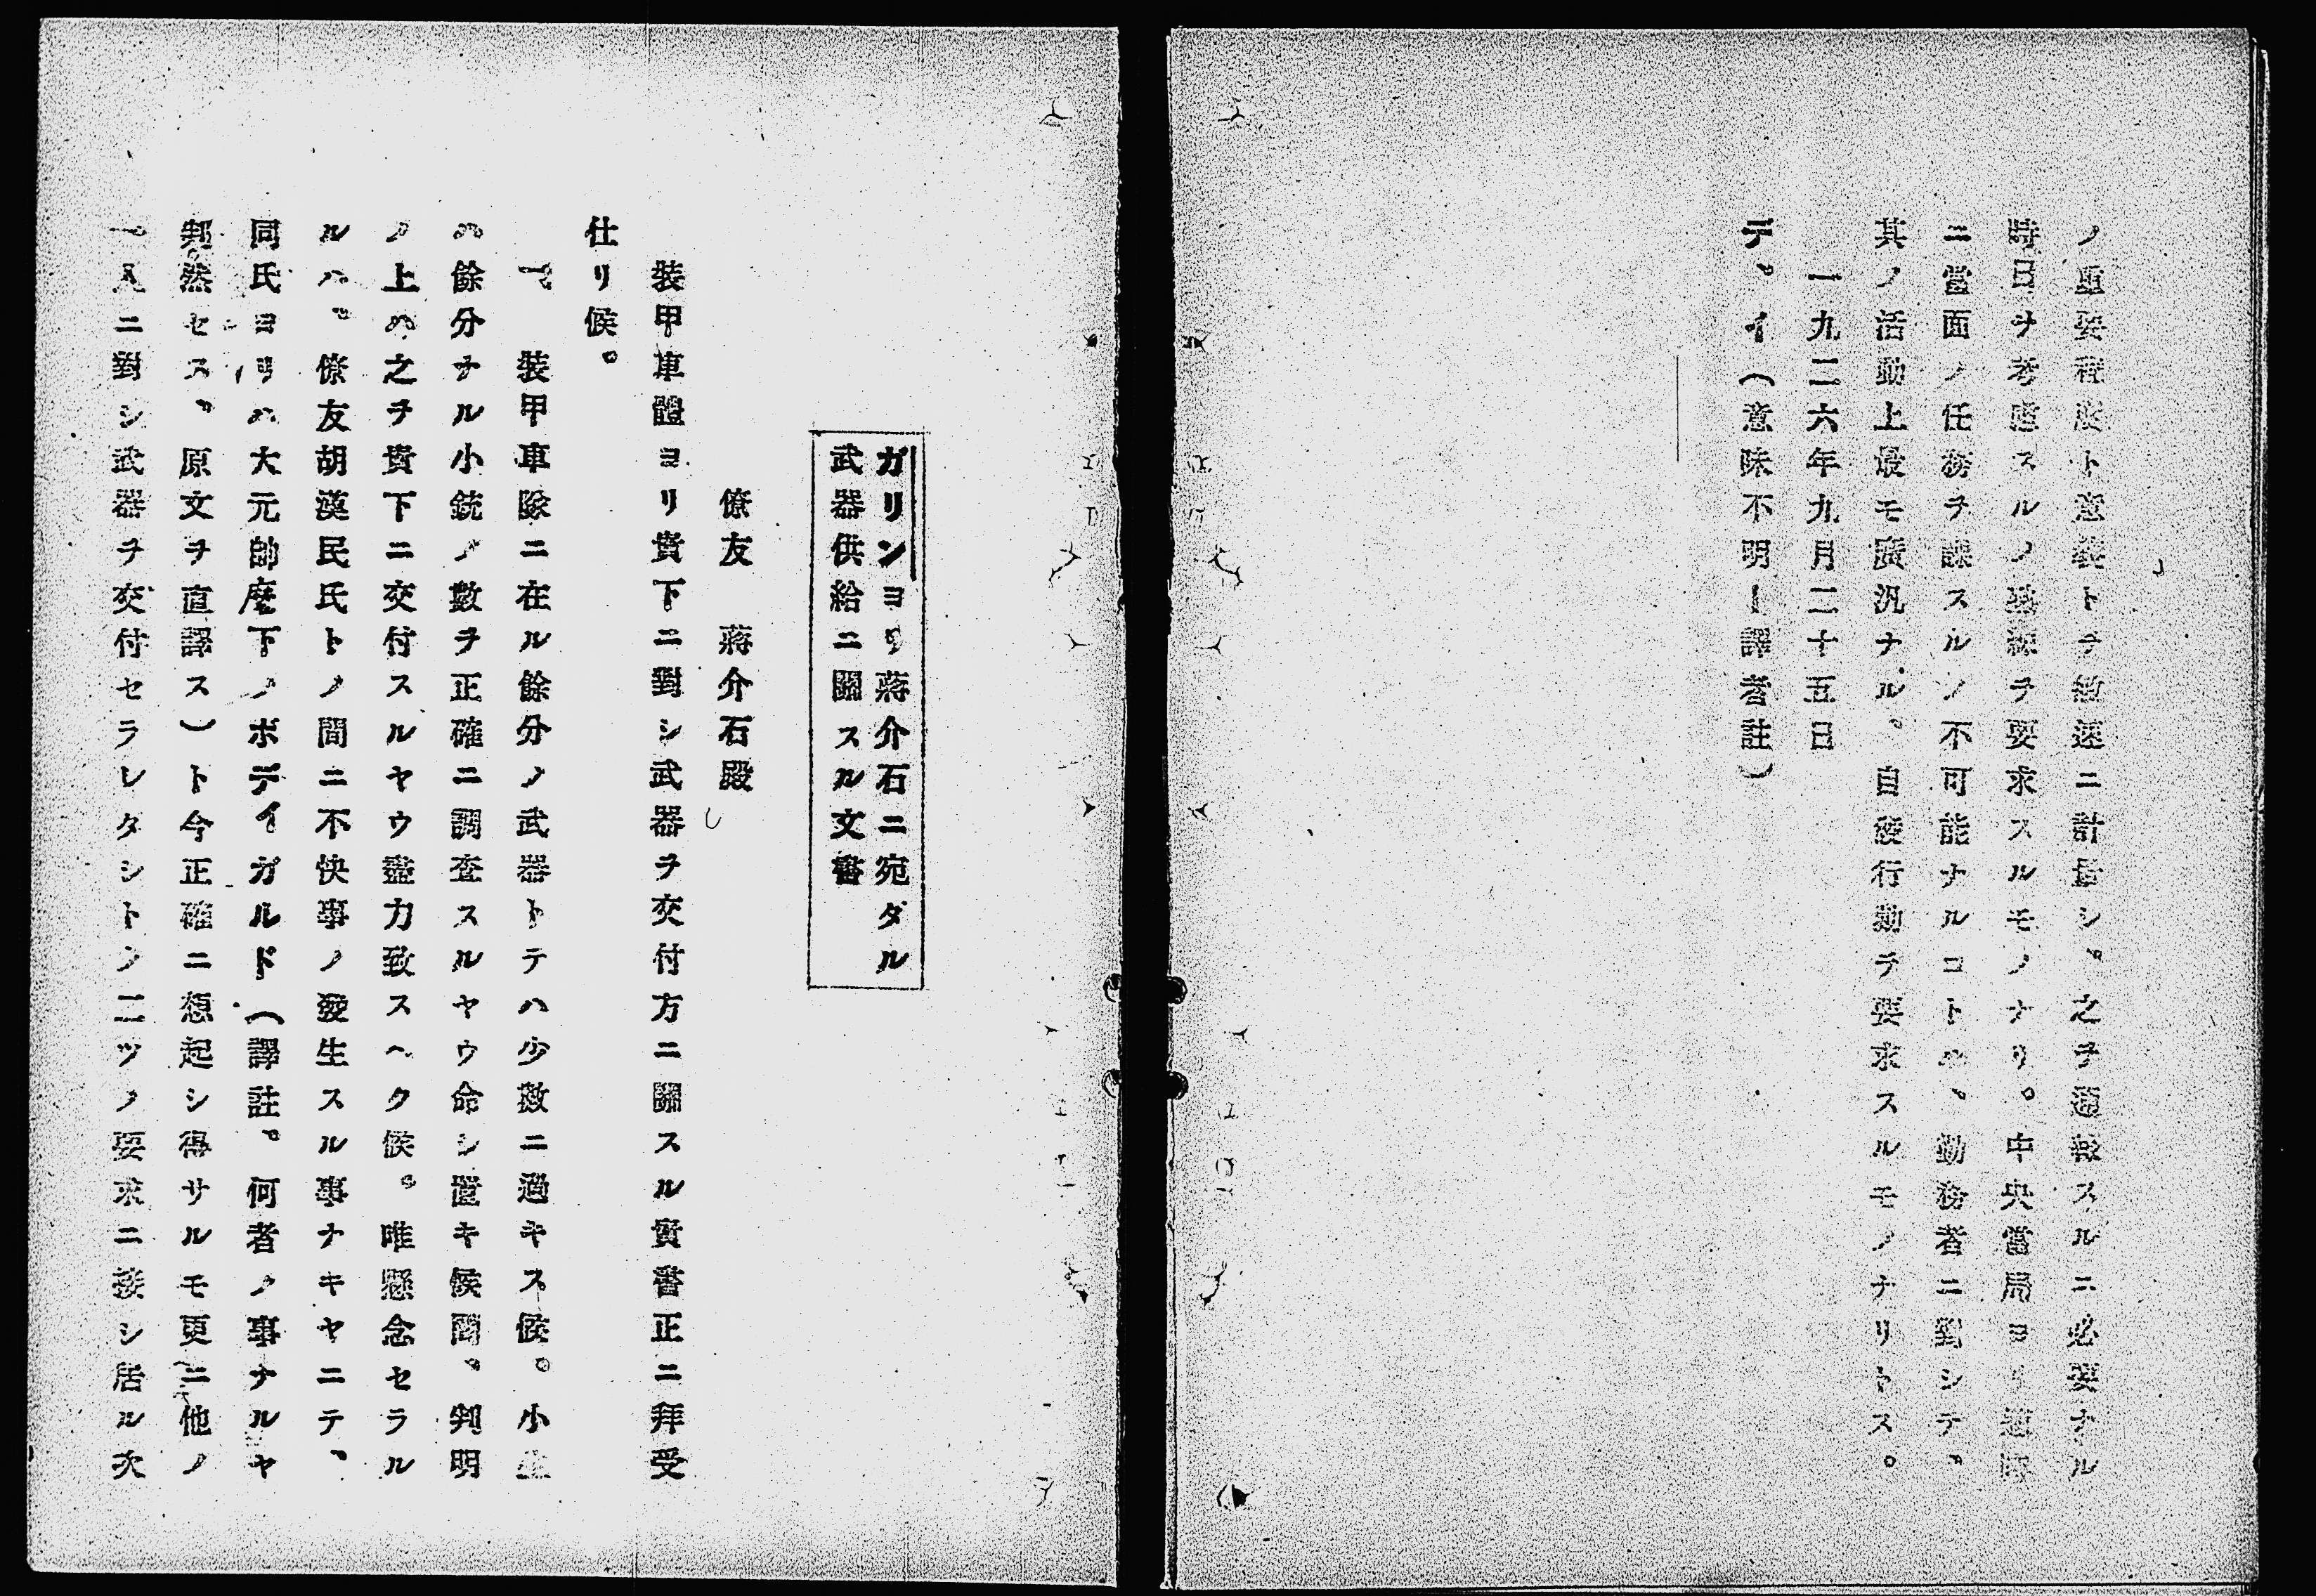 ノ重要程度ト意義トヲ敏速ニ計量シ。之ヲ通報スルニ必要ナル
時日ヲ考慮スルノ熟練ヲ要求スルモノナリ。中央當局ヨリ通
ニ當面ノ任務ヲ課スルノ不可能ナルコトハ、勤務者ニ對シテ。
其ノ活動上最モ廣汎ナル。自發行動ヲ要求スルモノナリトス。
一九二六年九月二十五日
デ。イ(意味不明ー譯者註)
ガリンヨリ蔣介石ニ宛タル
武器供給ニ關スル文書
僚友 蔣介石殿
装甲車體ヨリ貴下ニ對シ武器ヲ交付方ニ關スル貴書正ニ拜受
仕リ候。
一、装甲車隊ニ在ル餘分ノ武器トテハ少數ニ過キス候。小生
ハ餘分ナル小銃ノ數ヲ正確ニ調査スルヤウ命シ置キ候間、判明
ノ上ハ之ヲ貴下ニ交付スルヤウ盡力致スヘク候。唯懸念セラル
ルハ。僚友胡漢民氏トノ間ニ不快事ノ發生スル事ナキヤニテ、
同氏ヨリハ大元帥麾下ノボデイガルド(譯註。何者ノ事ナルヤ
判然セス、原文ヲ直譯ス)ト今正確ニ想起シ得サルモ更ニ他ノ
一人ニ對シ武器ヲ交付セラレタシトノ二ツノ要求ニ接シ居ル次